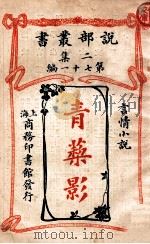 說部叢書
二集
第七十一編
情小說
青藜影
上海商務印書館發行